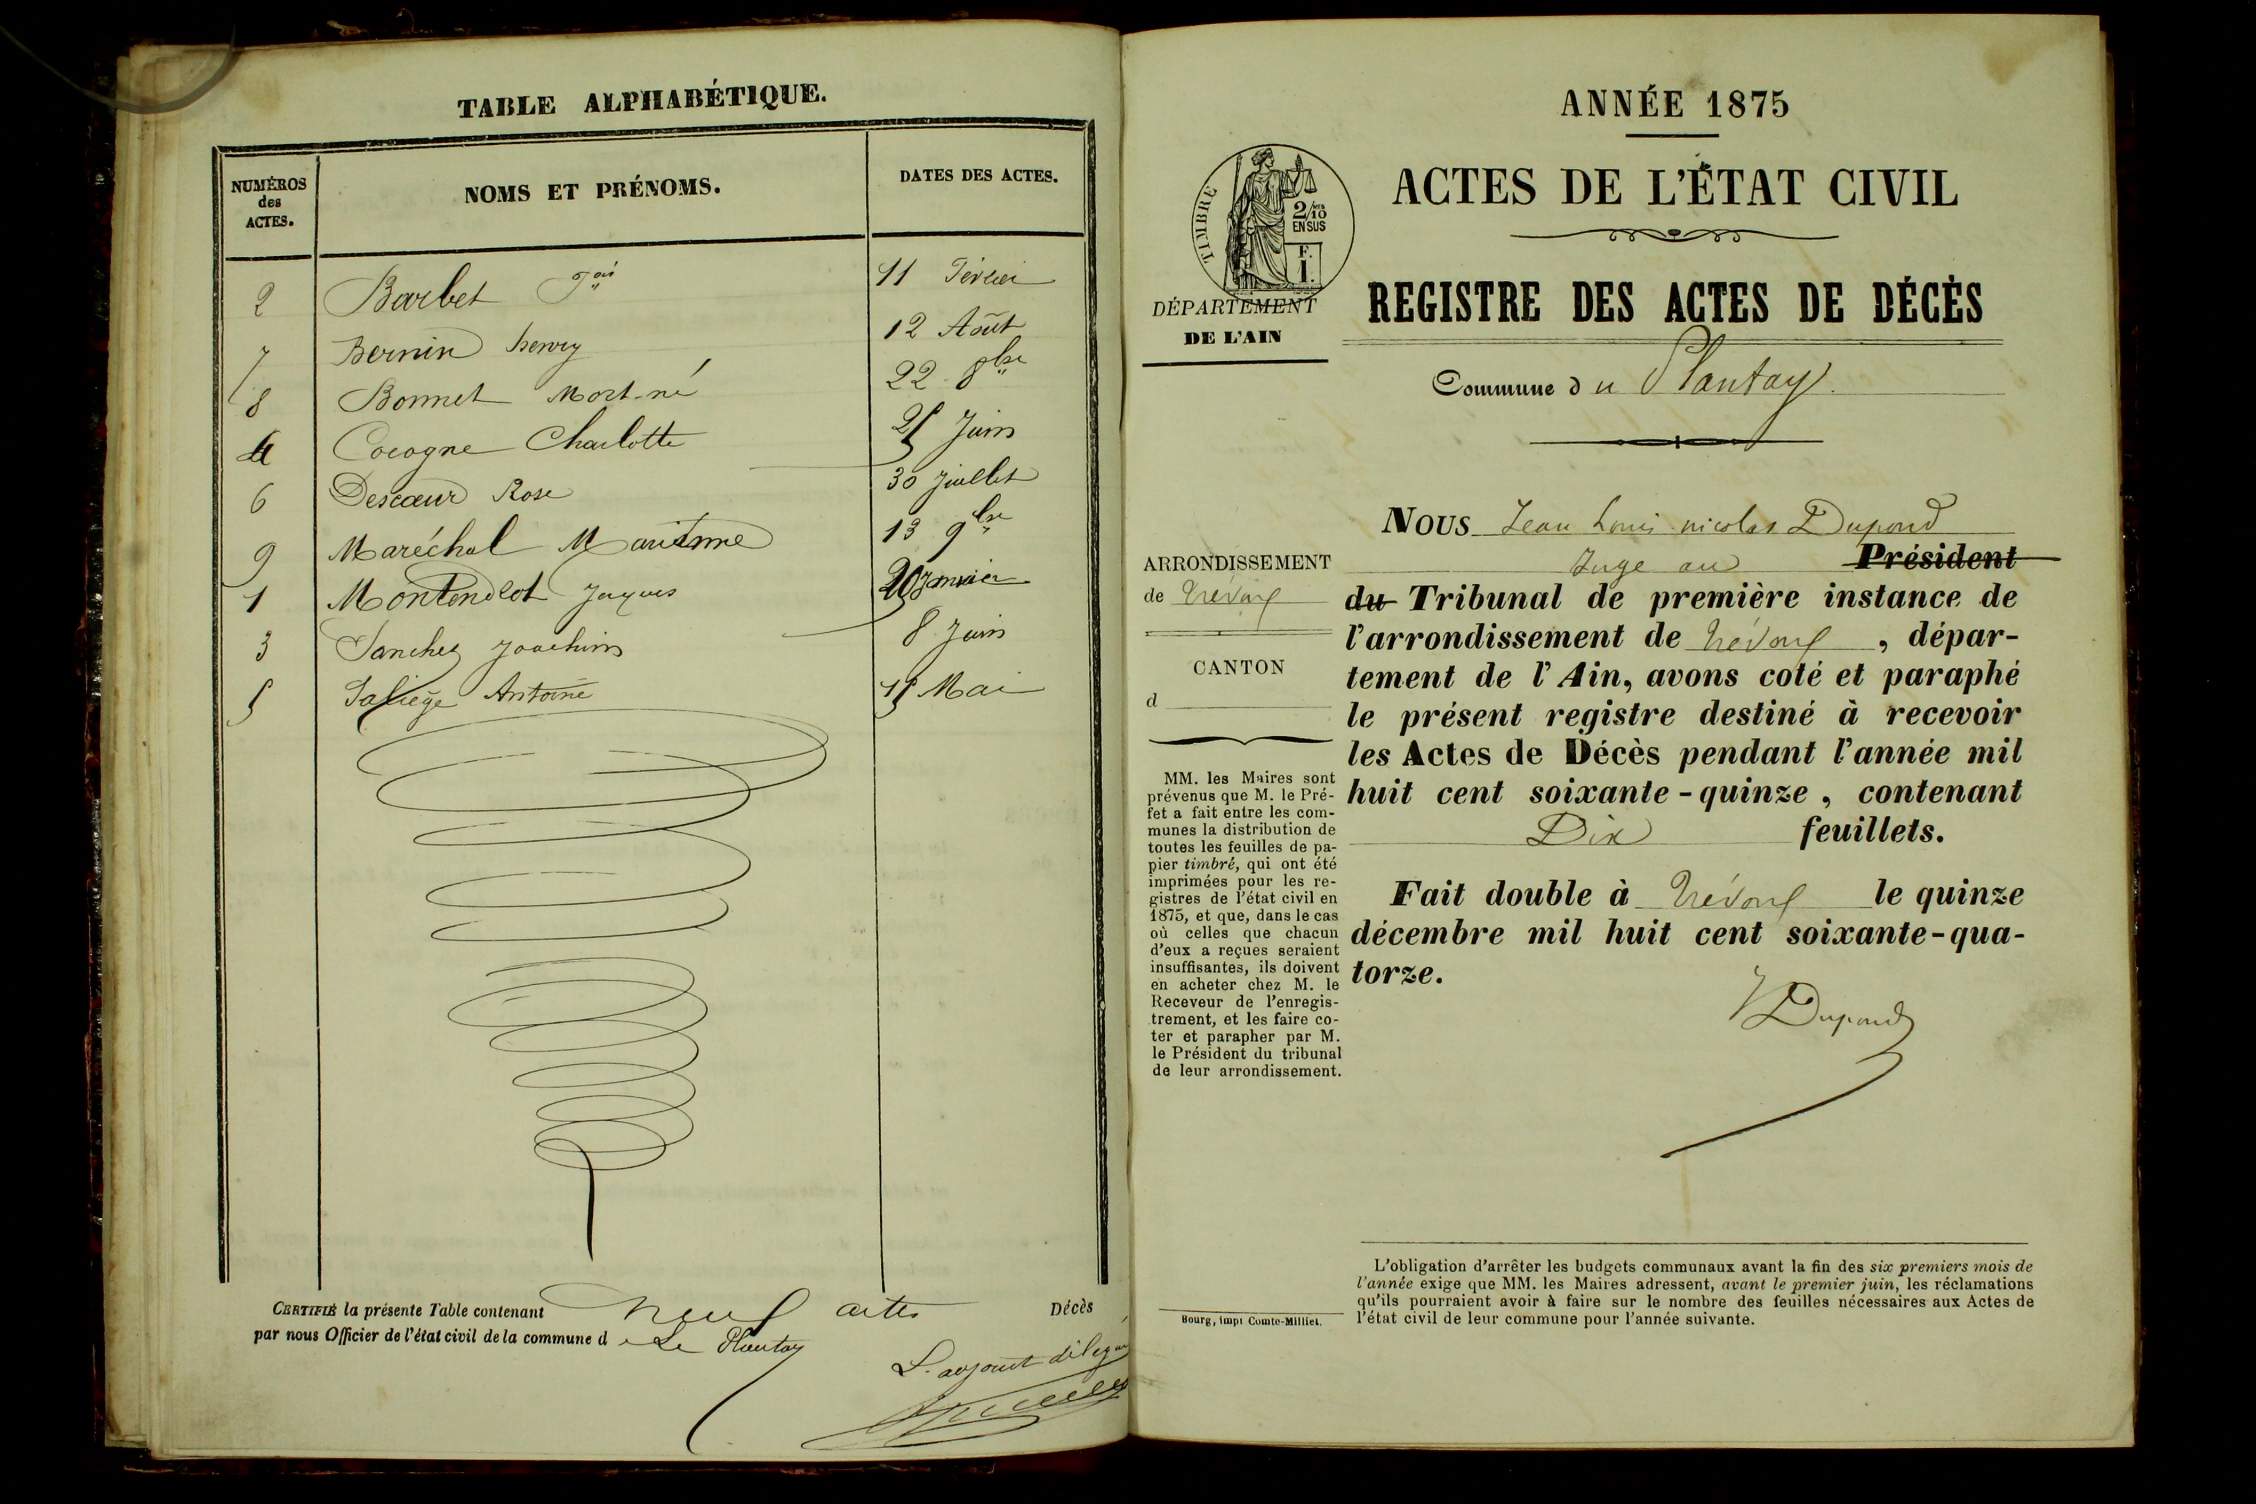 TABLE ALPHABÉTIQUE.
NUMÉROS
des
ACTES.
NOMS ET PRÉNOMS.
DATES DES ACTES.
2 Barbet 11 Février
7 Bernin henry 12 Août
8 Bonnet Mort-né 22 8bre
4 Cocogne Charlotte 25 Juin
6 Descœur Rose 30 Juillet
9 Maréchal 13 9bre
1 Jaques 20 Janvier
3 Sanchez Joachim 8 Juin
5 Saliège Antoine 15 Mai
CERTIFIÉ la présente Table contenant neuf actes Décès
par nous Officier de l'état civil de la commune de Le Plantay
L'adjoint délégué
ANNÉE 1875
ACTES DE L'ÉTAT CIVIL
TIMBRE
2/10
EN SUS
F.
1.
DÉPARTEMENT
DE L'AIN
REGISTRE DES ACTES DE DÉCÈS
Commune du Plantay
ARRONDISSEMENT
de Trévoux
CANTON
d
MM. les Maires sont
prévenus que M. le Pré-
fet a fait entre les com-
munes la distribution de
toutes les feuilles de pa-
pier timbré, qui ont été
imprimées pour les re-
gistres de l'état civil en
1875, et que, dans le cas
où celles que chacun
d'eux a reçues seraient
insuffisantes, ils doivent
en acheter chez M. le
Receveur de l'enregis-
trement, et les faire co-
ter et parapher par M.
le Président du tribunal
de leur arrondissement.
Bourg, impr Comte-Milliet.
NOUS Jean Louis nicolas Dupond
Juge au Président
du Tribunal de première instance de
l'arrondissement de Trévoux, dépar-
tement de l'Ain, avons coté et paraphé
le présent registre destiné à recevoir
les Actes de Décès pendant l'année mil
huit cent soixante-quinze, contenant
Dix feuillets.
Fait double à Trévoux le quinze
décembre mil huit cent soixante-qua-
torze.
Dupond
L'obligation d'arrêter les budgets communaux avant la fin des six premiers mois de
l'année exige que MM. les Maires adressent, avant le premier juin, les réclamations
qu'ils pourraient avoir à faire sur le nombre des feuilles nécessaires aux Actes de
l'état civil de leur commune pour l'année suivante.